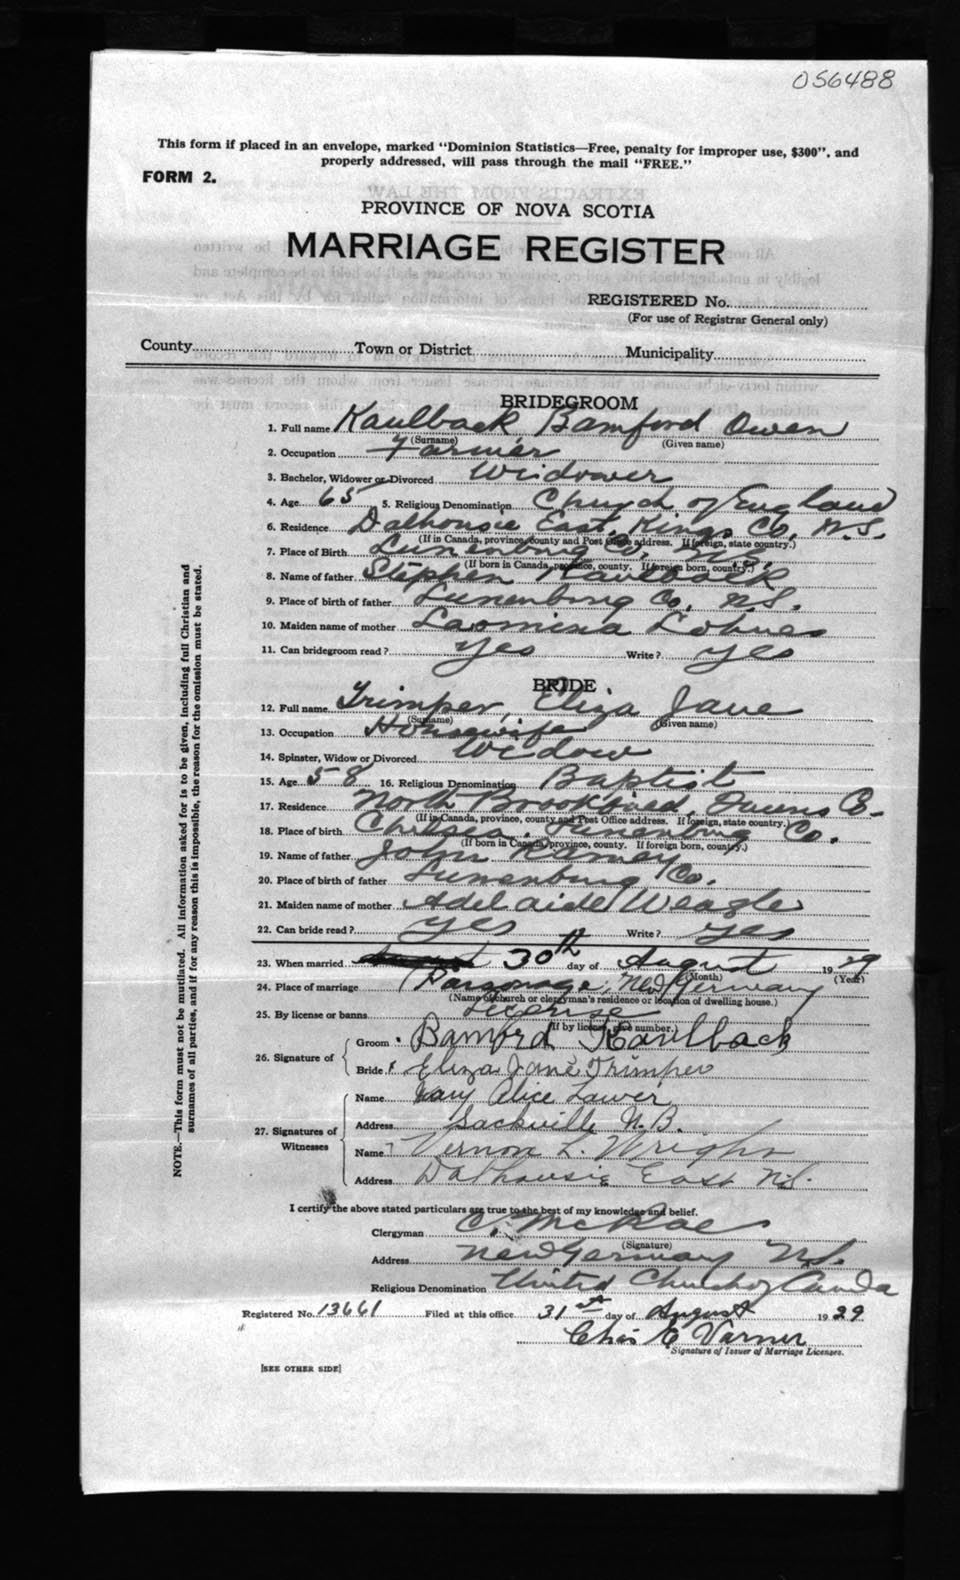 056488
This form if placed in an envelope, marked "Dominion Statistics—Free, penalty for improper use, $300", and
properly addressed, will pass through the mail "FREE."
FORM 2.
PROVINCE OF NOVA SCOTIA
MARRIAGE REGISTER
REGISTERED No.
(For use of Registrar General only)
County Town or District Municipality
BRIDEGROOM
1. Full name Kaulback, Bamford Owen
(Surname) (Given name)
2. Occupation Farmer
3. Bachelor, Widower or Divorced Widower
4. Age 65 5. Religious Denomination Church of England
6. Residence Dalhousie East, Kings Co, N.S.
(If in Canada, province, county and Post Office address. If foreign, state country.)
7. Place of Birth Lunenburg Co, N.S.
(If born in Canada, province, county. If foreign born, country.)
8. Name of father Stephen Kaulback
9. Place of birth of father Lunenburg Co, N.S.
10. Maiden name of mother Lohnes
11. Can bridegroom read? Yes Write? Yes
BRIDE
12. Full name Trimper, Eliza Jane
(Surname) (Given name)
13. Occupation Housewife
14. Spinster, Widow or Divorced Widow
15. Age 58 16. Religious Denomination Baptist
17. Residence North Brookfield, Queens Co-
(If in Canada, province, county and Post Office address. If foreign, state country.)
18. Place of birth Chelsea, Lunenburg Co.
(If born in Canada, province, county. If foreign born, country.)
19. Name of father John Ramey
20. Place of birth of father Lunenburg Co.
21. Maiden name of mother Adelaide Weagle
22. Can bride read? Yes Write? Yes
23. When married 30th day of August 1929
(Month) (Year)
24. Place of marriage Parsonage, New Germany
(Name of church or clergyman's residence or location of dwelling house.)
25. By license or banns License
(If by license, give number.)
26. Signature of
Groom Bamford Kaulback
Bride Eliza Jane Trimper
27. Signatures of Witnesses
Name Mary Alice
Address Sackville N.B.
Name Vernon L. Wright
Address Dalhousie East N.S.
I certify the above stated particulars are true to the best of my knowledge and belief.
Clergyman C. McRae
(Signature)
Address New Germany N.S.
Religious Denomination United Church of Canada
Registered No. 13661 Filed at this office 31st day of August 1929
Chas E Varner
Signature of Issuer of Marriage Licenses.
[SEE OTHER SIDE]
NOTE.—This form must not be mutilated. All information asked for is to be given, including full Christian and
surnames of all parties, and if for any reason this is impossible, the reason for the omission must be stated.